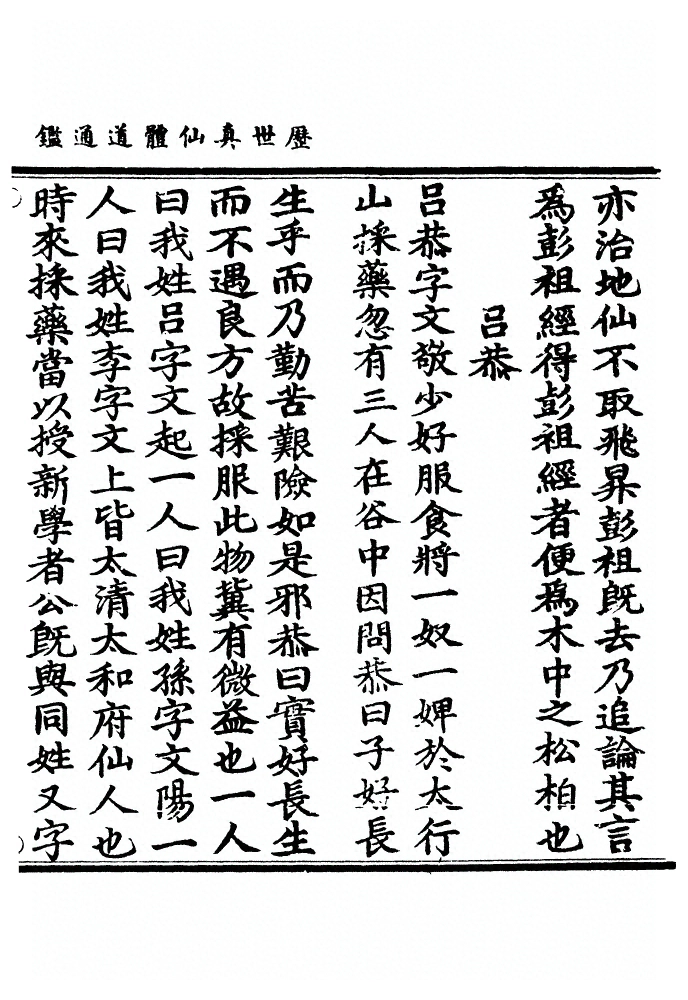 歷世真仙體道通鑑
亦治地仙不取飛昇彭祖既去乃追論其言
爲彭祖經得彭祖經者便爲木中之松柏也
呂恭
呂恭字文敬少好服食將一奴一婢於太行
山採藥忽有三人在谷中因問恭曰子好長
生乎而乃勤苦艱險如是邪恭曰實好長生
而不遇良方故採服此物冀有微益也一人
曰我姓呂字文起一人曰我姓孫字文陽一
人曰我姓李字文上皆太清太和府仙人也
時來採藥當以授新學者公既與同姓又字